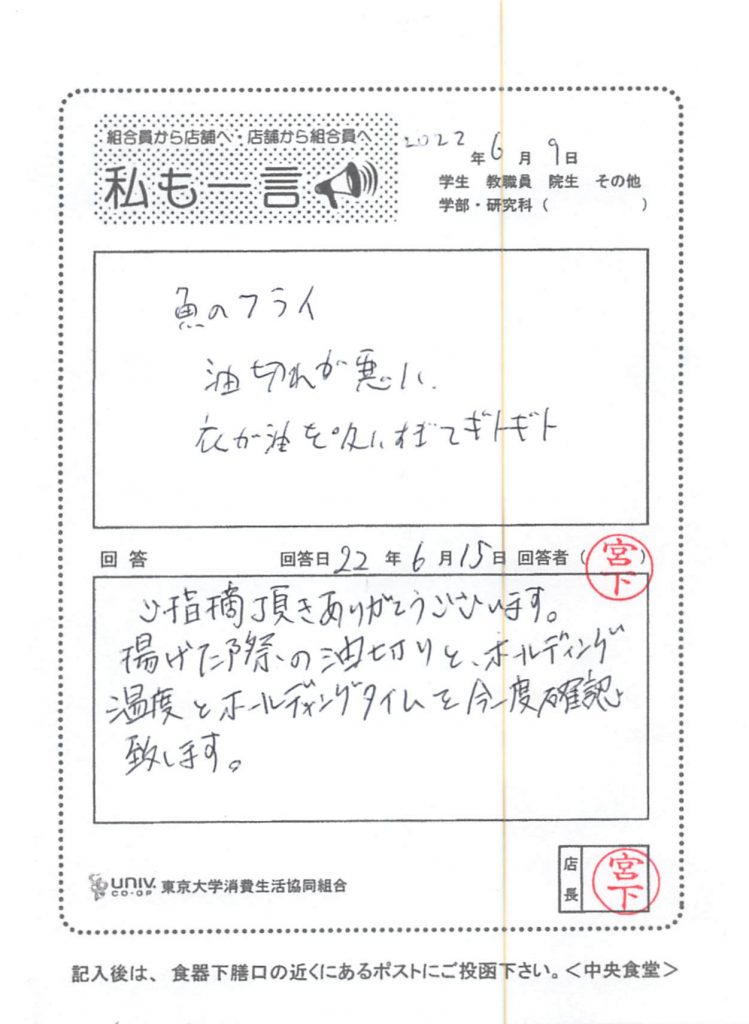 組合員から店舗へ・店舗から組合員へ
私も一言
2022年6月9日
学生 教職員 院生 その他
学部・研究科（ ）
魚のフライ
油切れが悪い、
衣が油を吸いすぎてギトギト
回答 回答日22年6月15日 回答者（宮下）
ご指摘頂きありがとうございます。
揚げた際の油切りと、ホールディング
温度とホールディングタイムを今一度確認
致します。
UNIV. CO-OP 東京大学消費生活協同組合
店長 宮下
記入後は、食器下膳口の近くにあるポストにご投函下さい。＜中央食堂＞